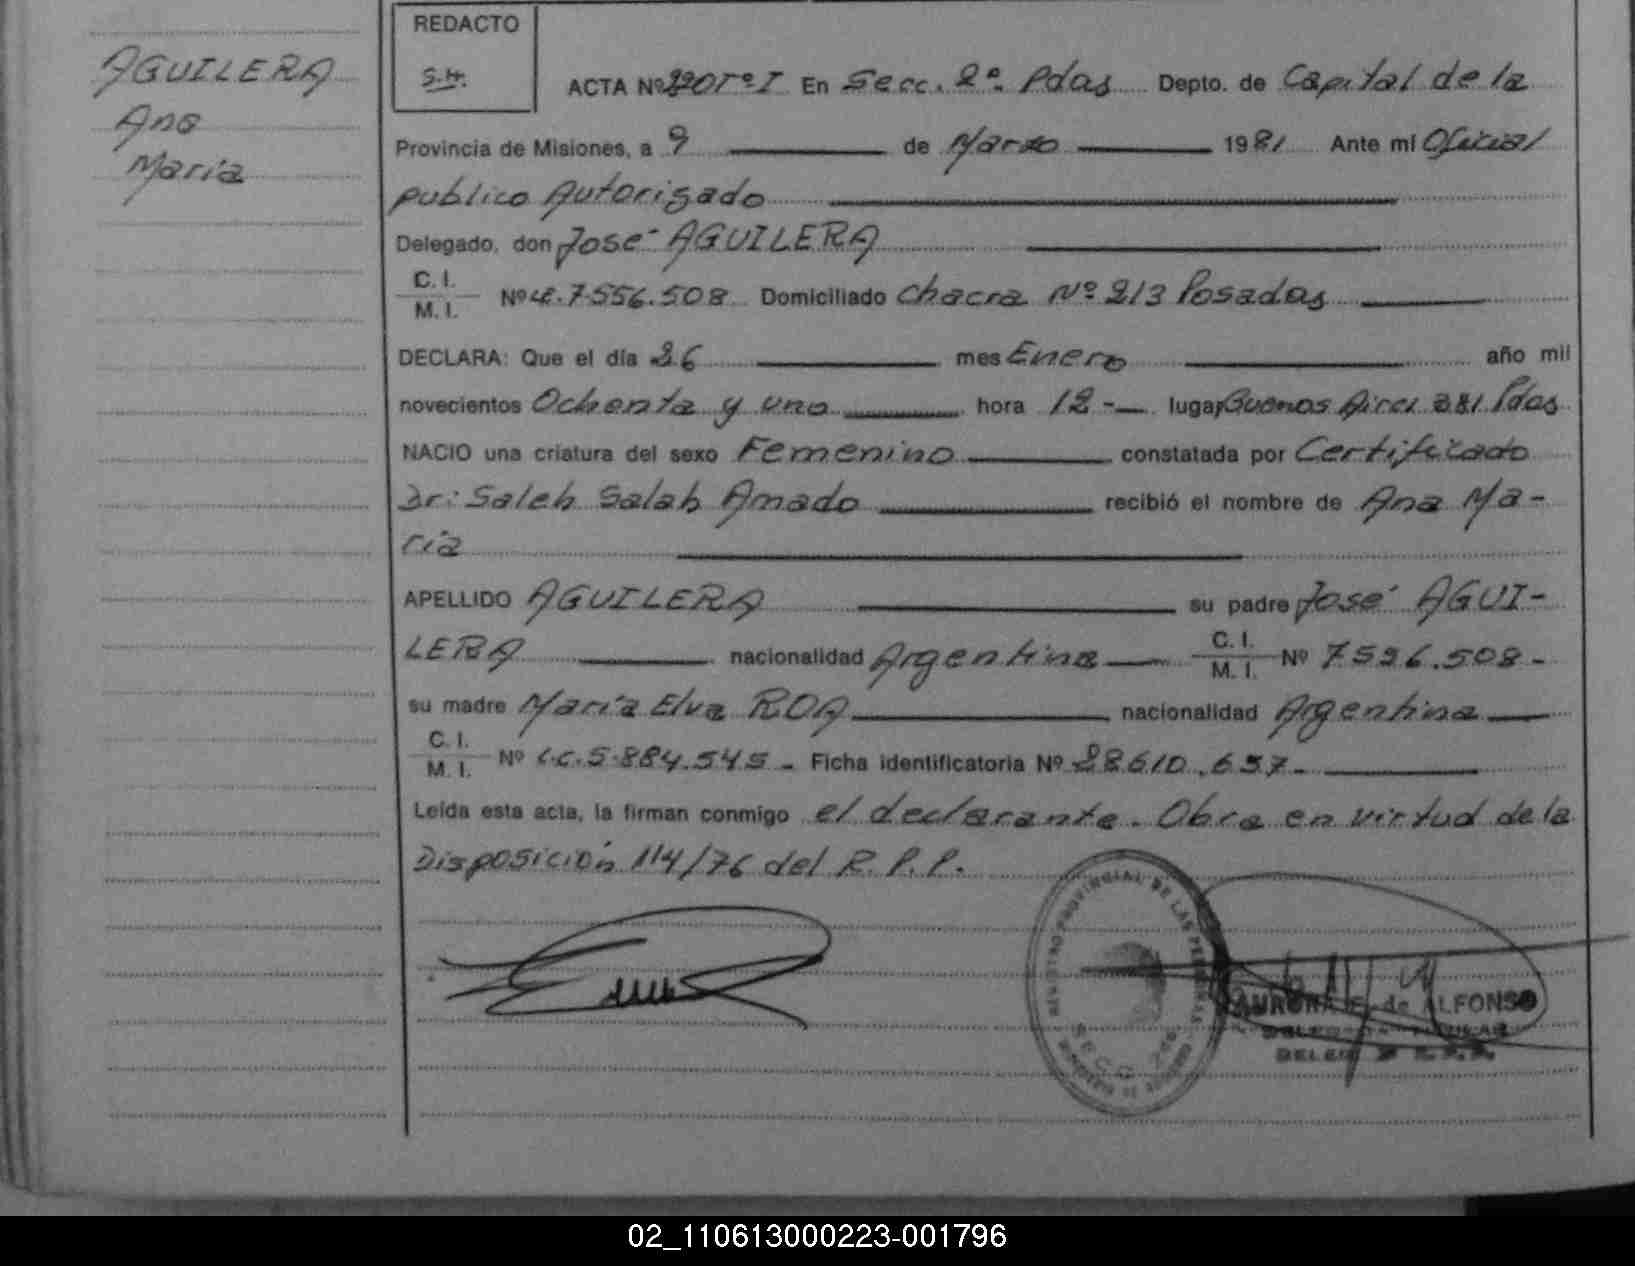 AGUILERA
Ana
María
REDACTO
S.H.
ACTA Nº 220 Tº I En Secc. 2ª. Pdas Depto. de Capital de la
Provincia de Misiones, a 9 de Marzo 1981 Ante mi Oficial
publico Autorizado
Delegado, don José AGUILERA
C. I.
M. I. Nº 7.556.508 Domiciliado Chacra Nº 213 Posadas
DECLARA: Que el día 26 mes Enero año mil
novecientos Ochenta y uno hora 12 - lugar Buenos Aires 281 Pdas
NACIO una criatura del sexo Femenino constatada por Certificado
Dr: Saleh Salah Amado recibió el nombre de Ana Ma-
ría
APELLIDO AGUILERA su padre José AGUI-
LERA nacionalidad Argentina C. I.
M. I. Nº 7556.508 -
su madre María Elva ROA nacionalidad Argentina
C. I.
M. I. Nº L.C. 5.884.545 - Ficha identificatoria Nº 28610.657 -
Leída esta acta, la firman conmigo el declarante. Obra en virtud de la
Disposición 114/76 del R.P.P.
REGISTRO PROVINCIAL DE LAS PERSONAS
SECC. 2da
AURORA E. de ALFONSO
02_110613000223-001796